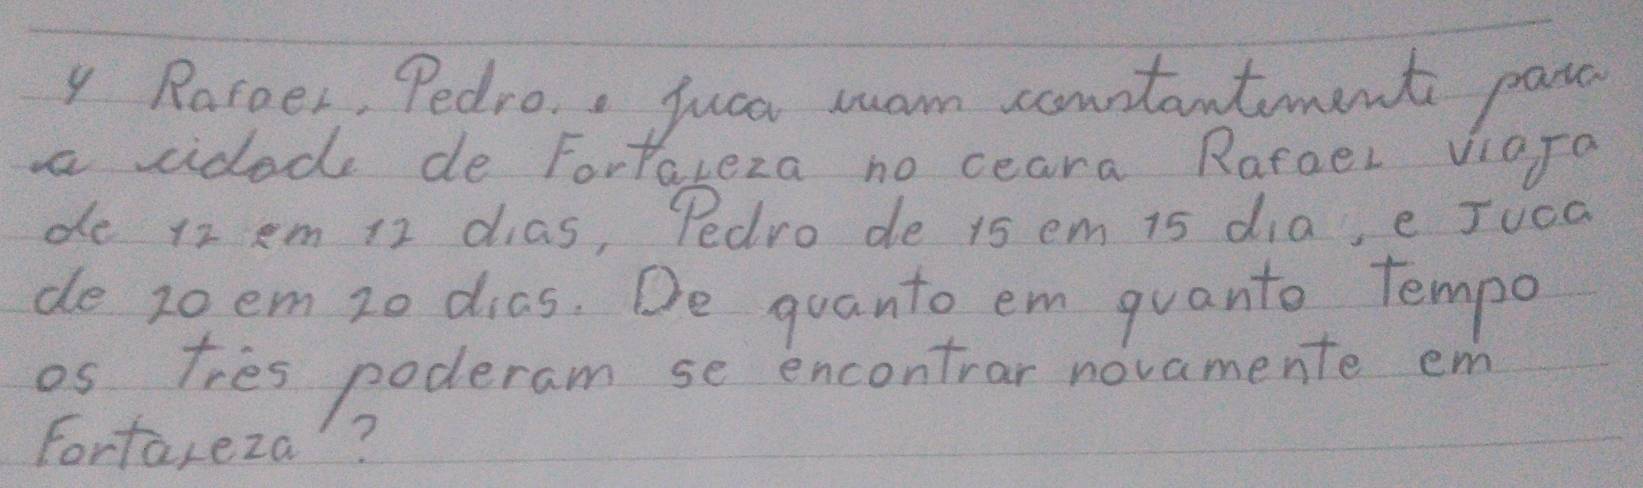 4 Rafael, Pedro, e Juca vuam constantemente para
a cidade de Fortaleza no ceara Rafael viaja
de 12 em 12 dias, Pedro de 15 em 15 dia, e Juca
de 20 em 20 dias. De quanto em quanto Tempo
os Três poderam se encontrar novamente em
Fortaleza?